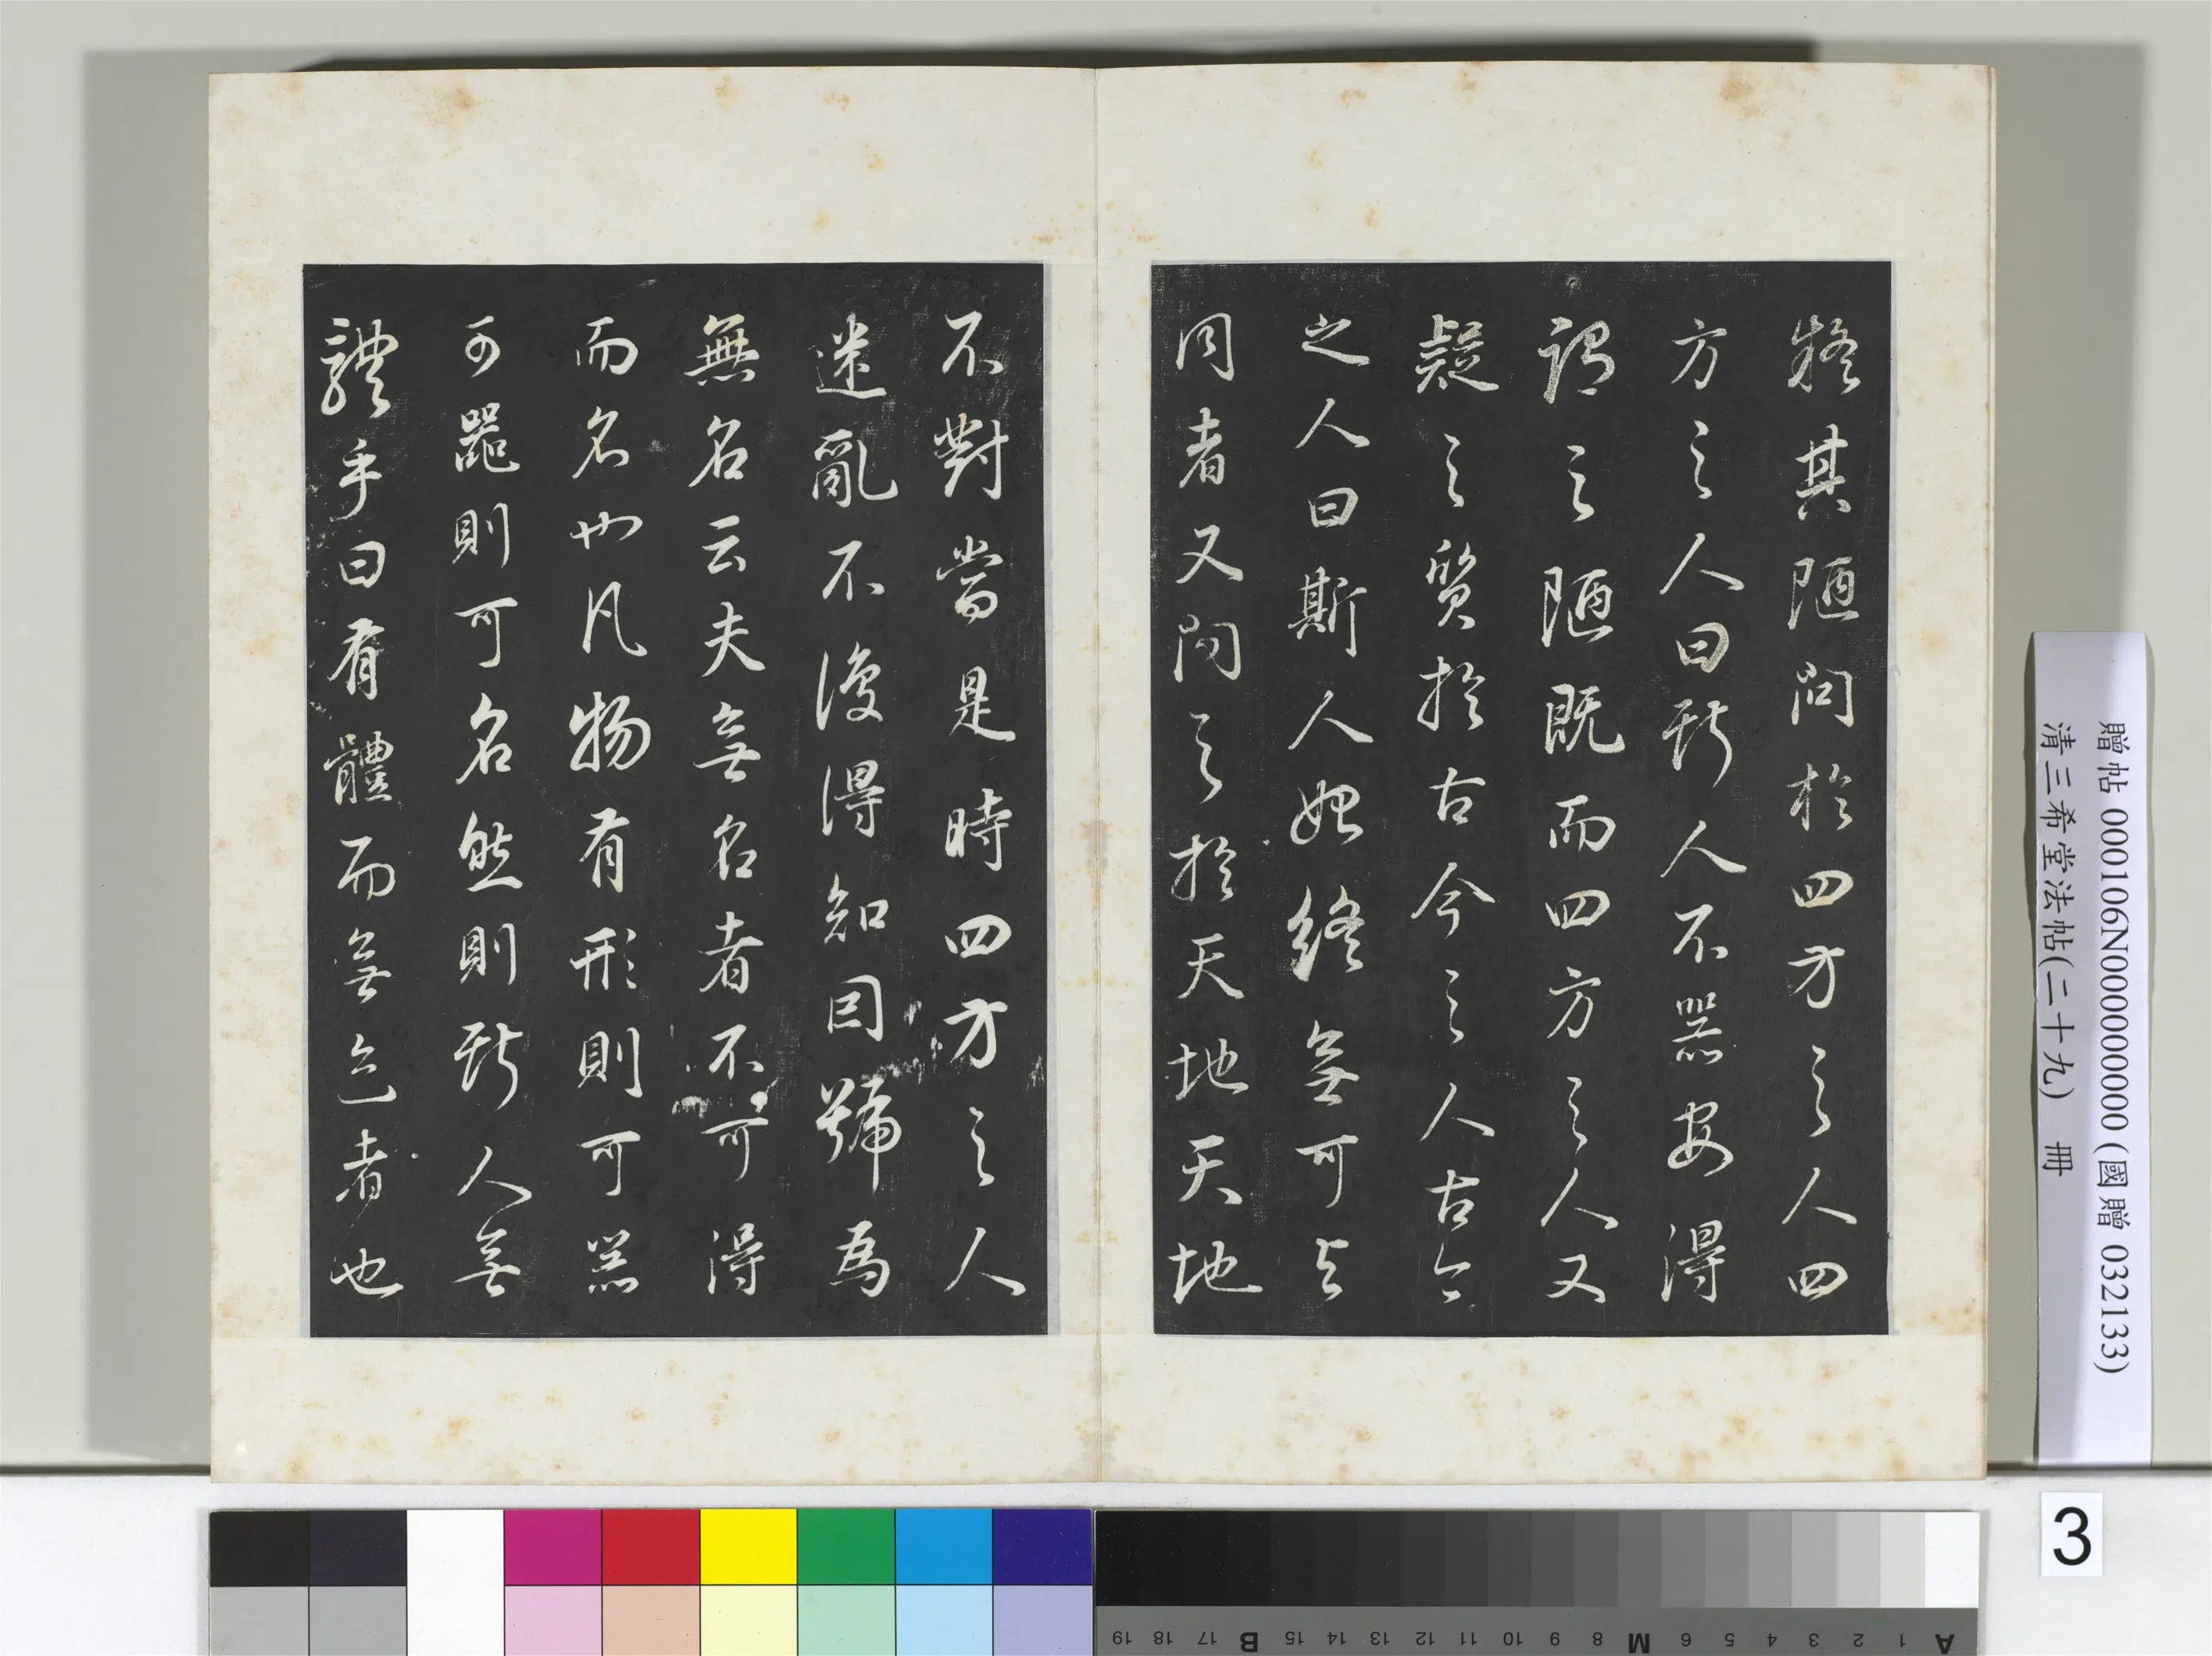 將其陋問於四方之人四
方之人曰斯人不器安得
謂之陋既而四方之人又
疑之質於古今之人古今
之人曰斯人始終無可與
同者又問之於天地天地
不對當是時四方之人
迷亂不復得知因號為
無名云夫無名者不可得
而名也凡物有形則可器
可器則可名然則斯人無
體乎曰有體而無迹者也
贈帖 000106N000000000 (國贈 032133)
清三希堂法帖(二十九) 冊
3
A 1 2 3 4 5 6 M 8 9 10 11 12 13 14 15 B 17 18 19